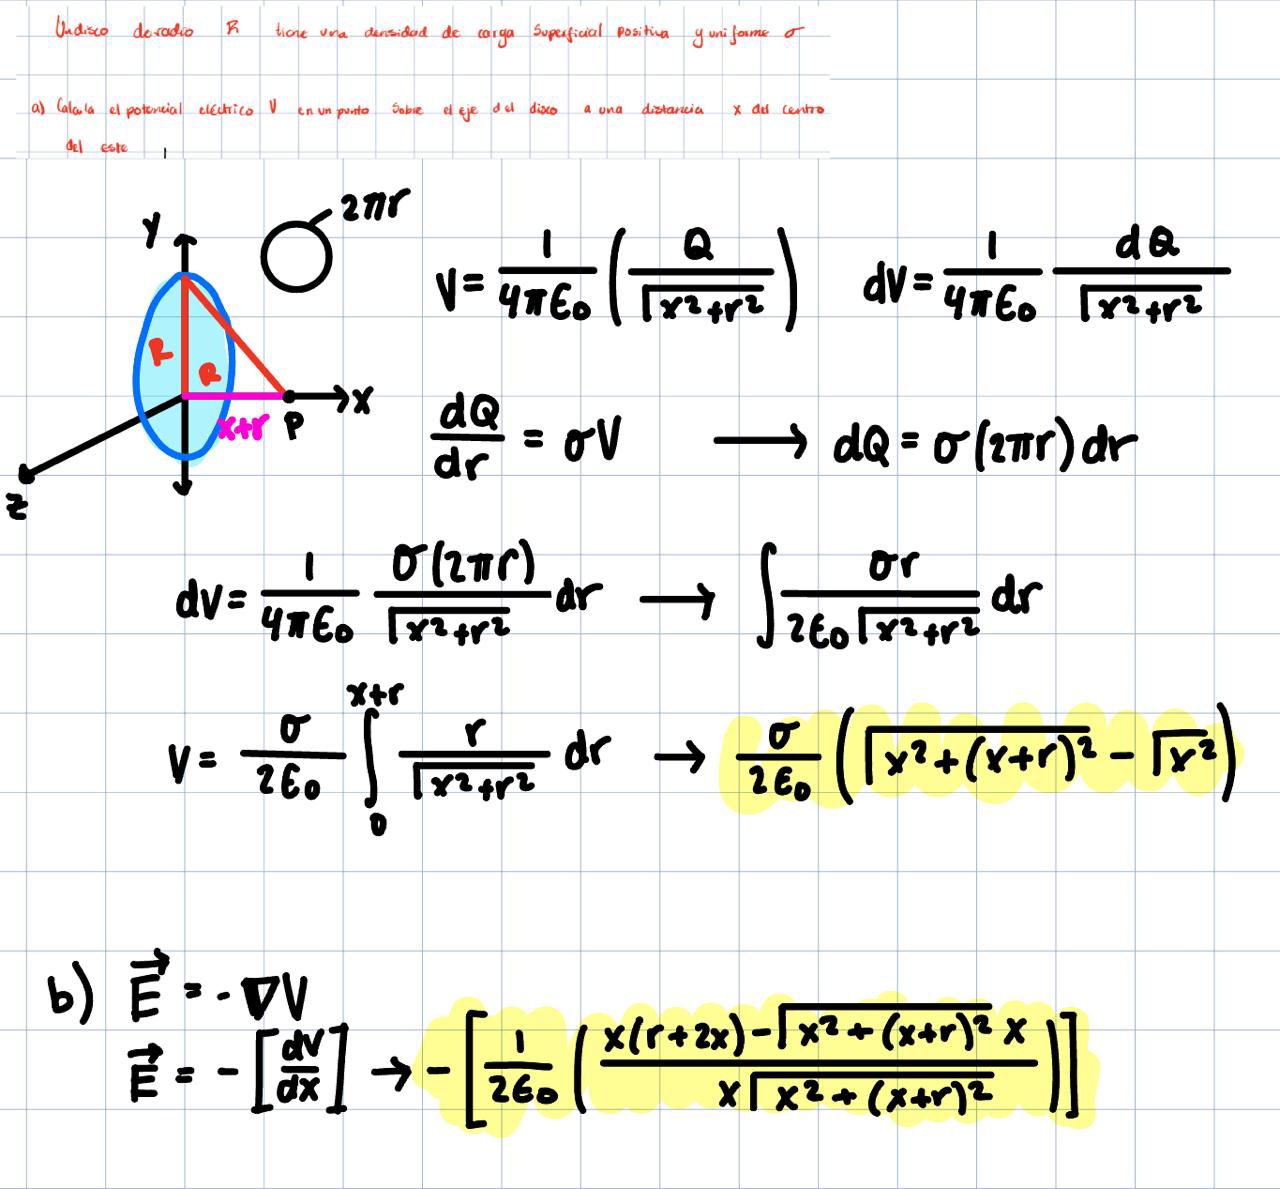 Un disco de radio R tiene una densidad de carga Superficial positiva y uniforme σ
a) Calcula el potencial eléctrico V en un punto sobre el eje del disco a una distancia x del centro
del este
2πr
Y
V = 1/(4πε₀) (Q/√(x²+r²)) dV = 1/(4πε₀) dQ/√(x²+r²)
R
R
X
x+r P
dQ/dr = σV → dQ = σ(2πr) dr
Z
dV = 1/(4πε₀) σ(2πr)/√(x²+r²) dr → ∫ σr/(2ε₀√(x²+r²)) dr
V = σ/(2ε₀) ∫₀^(x+r) r/√(x²+r²) dr → σ/(2ε₀) (√(x²+(x+r)²) - √(x²))
b) E⃗ = -∇V
E⃗ = -[dV/dx] → -[1/(2ε₀) ((x(r+2x) - √(x²+(x+r)²) x)/(x√(x²+(x+r)²)))]